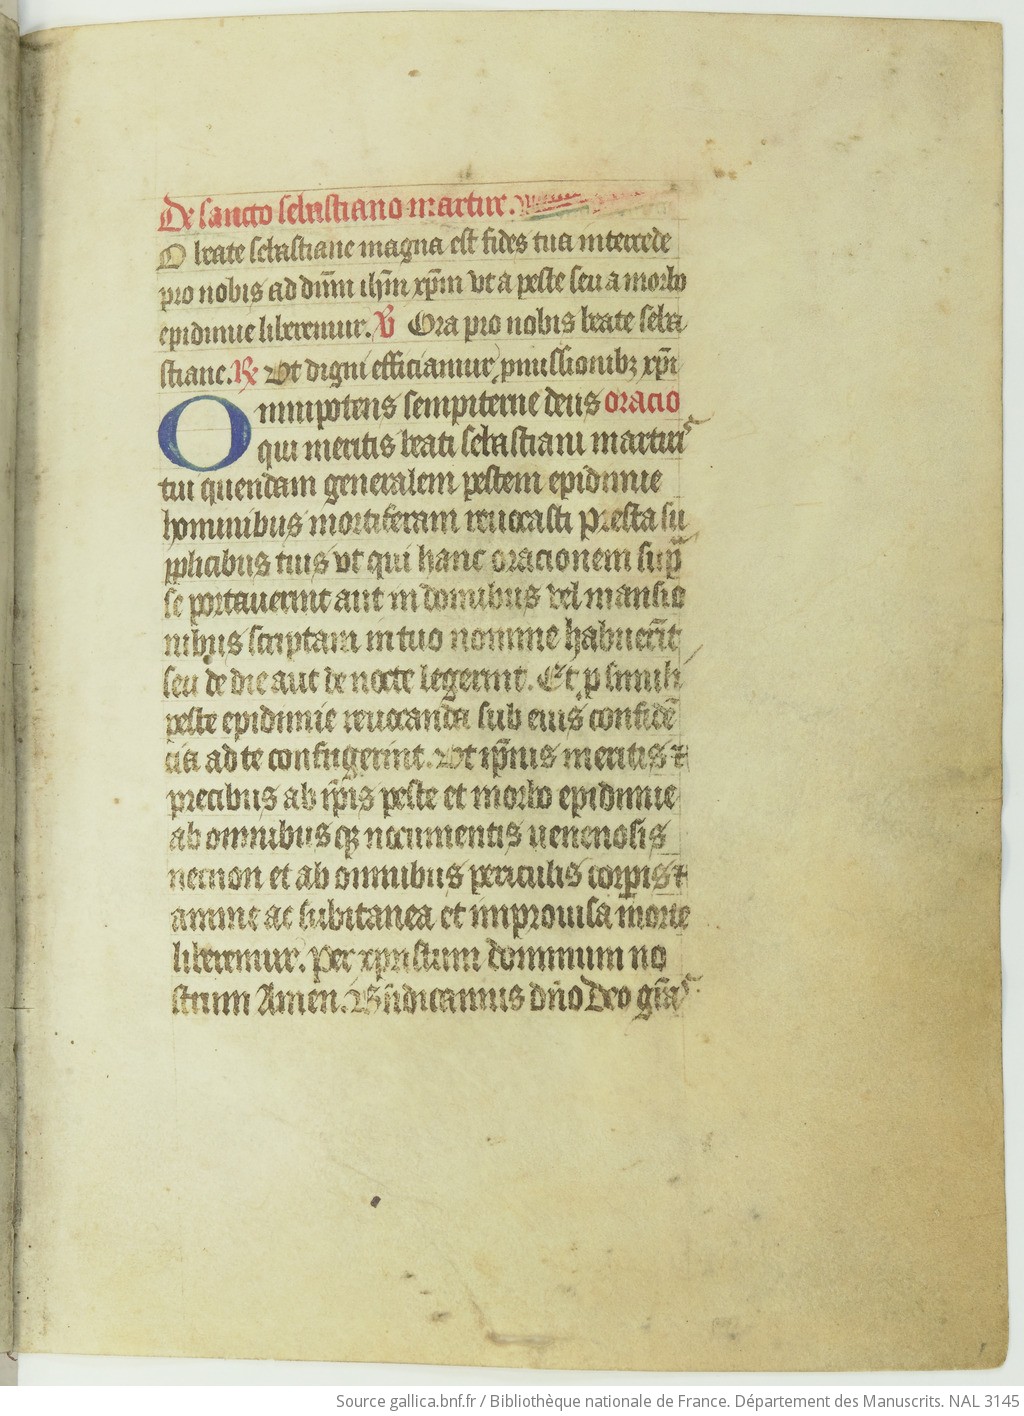 De sancto sebastiano martire.
O beate sebastiane magna est fides tua intercede
pro nobis ad dn̄m ihm̄ xp̄m vt a peste seu a morbo
epidimie liberemur. V̷ Ora pro nobis beate seba
stiane. R̷ Vt digni efficiamur ꝓmissionibꝫ xp̄i
Omnipotens sempiterne deus oracio
qui meritis beati sebastiani martiris
tui quendam generalem pestem epidimie
hominibus mortiferam reuocasti presta su
pplicibus tuis vt qui hanc oracionem sup̄
se portauerint aut in domibus vel mansio
nibus scriptam in tuo nomine habuerīt
seu de die aut de nocte legerint. Et ꝓ simili
peste epidimie reuocanda sub eius confidē
cia ad te confugerint. Vt ip̄ius meritis ⁊
precibus ab ip̄is peste et morbo epidimie
ab omnibus qꝫ nocumentis uenenosis
necnon et ab omnibus periculis corꝑis ⁊
anime ac subitanea et improuisa morte
liberemur. Per xpristum dominum no
strum Amen. Bn̄dicamus dn̄o Deo grās